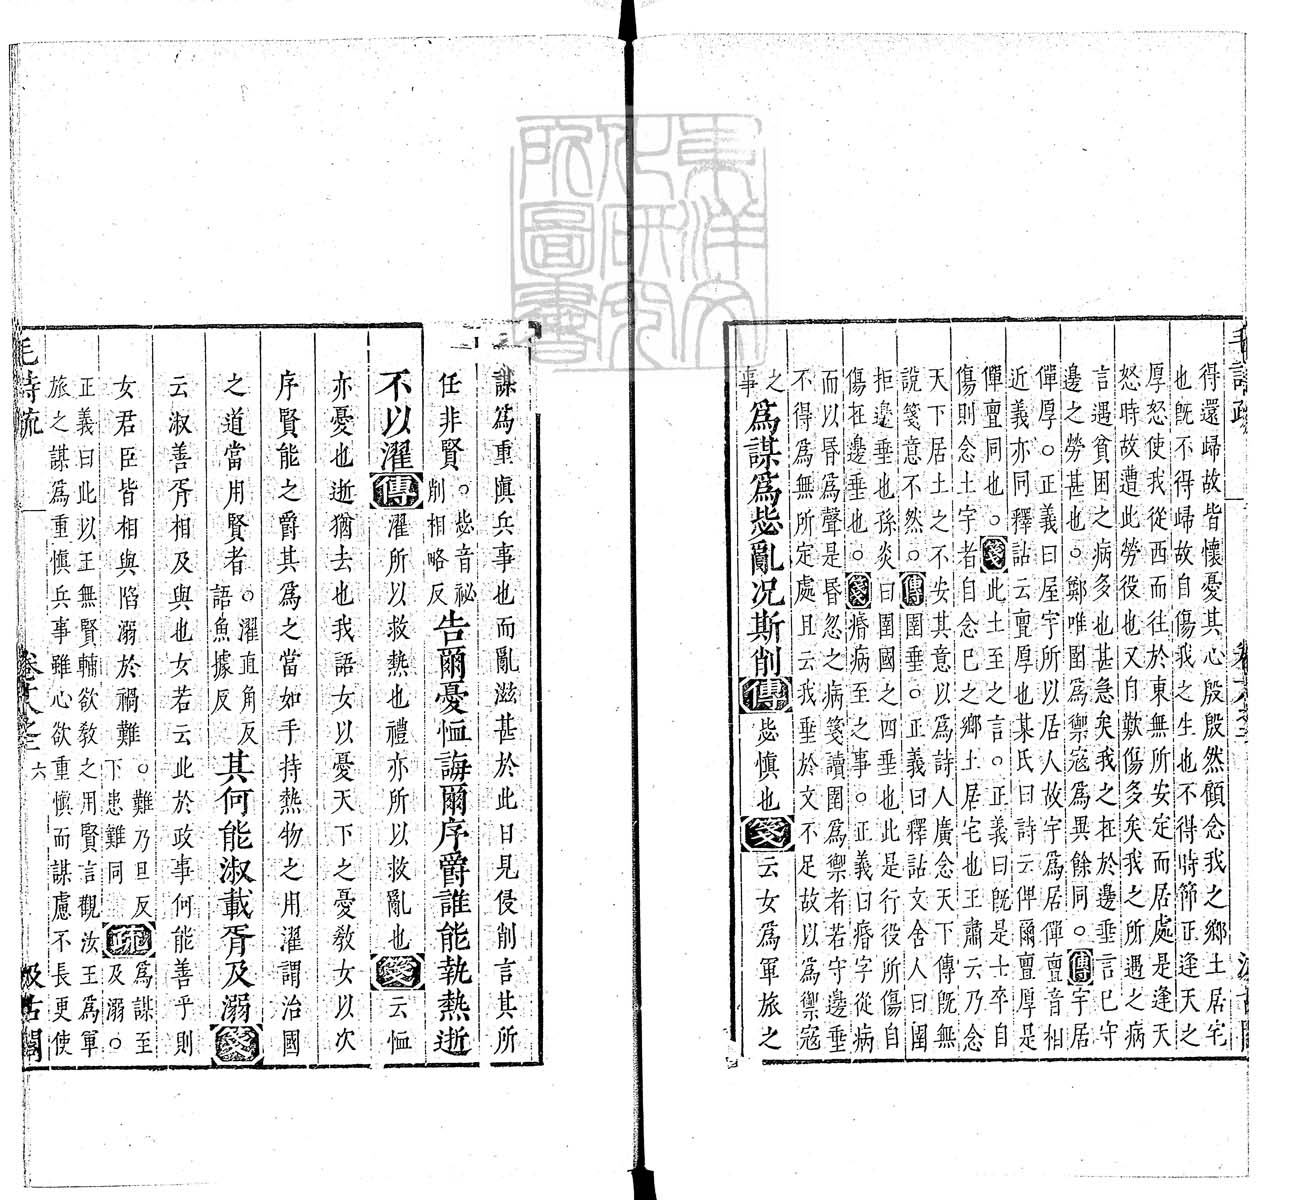 得還歸故皆懷憂其心殷殷然顧念我之鄉土居宅
也旣不得歸故自傷我之生也不得時節正逢天之
厚怒使我從西而往於東無所安定而居處是逢天
怒時故遭此勞役也又自歎傷多矣我之所遇之病
言遇貧困之病多也甚急矣我之在於邊垂言已守
邊之勞甚也○鄭唯圉爲禦寇爲異餘同○傳宇居
僤厚○正義曰屋宇所以居人故宇爲居僤亶音相
近義亦同釋詁云亶厚也某氏曰詩云俾爾亶厚是
僤亶同也○箋此土至之言○正義曰旣是士卒自
傷則念土宇者自念巳之鄉土居宅也王肅云乃念
天下居土之不安其意以爲詩人廣念天下傳旣無
說箋意不然○傳圉垂○正義曰釋詁文舍人曰圉
拒邊垂也孫炎曰圉國之四垂也此是行役所傷自
傷在邊垂也○箋瘏病至之事○正義曰瘏字從病
而以昬爲聲是昬忽之病箋讀圉爲禦者若守邊垂
不得爲無所定處且云我垂於文不足故以爲禦寇
之
事
爲謀爲毖亂況斯削傳毖愼也箋云女爲軍旅之
謀爲重愼兵事也而亂滋甚於此日見侵削言其所
任非賢○毖音祕
削相略反
告爾憂恤誨爾序爵誰能執熱逝
不以濯傳濯所以救熱也禮亦所以救亂也箋云恤
亦憂也逝猶去也我語女以憂天下之憂敎女以次
序賢能之爵其爲之當如手持熱物之用濯謂治國
之道當用賢者○濯直角反
語魚據反
其何能淑載胥及溺箋
云淑善胥相及與也女若云此於政事何能善乎則
女君臣皆相與陷溺於禍難○難乃旦反
下患難同
疏爲謀至
及溺○
正義曰此以王無賢輔欲敎之用賢言觀汝王爲軍
旅之謀爲重愼兵事雖心欲重愼而謀慮不長更使
毛詩疏
卷十八之二
六
汲古閣
東洋文
化研究
所圖書